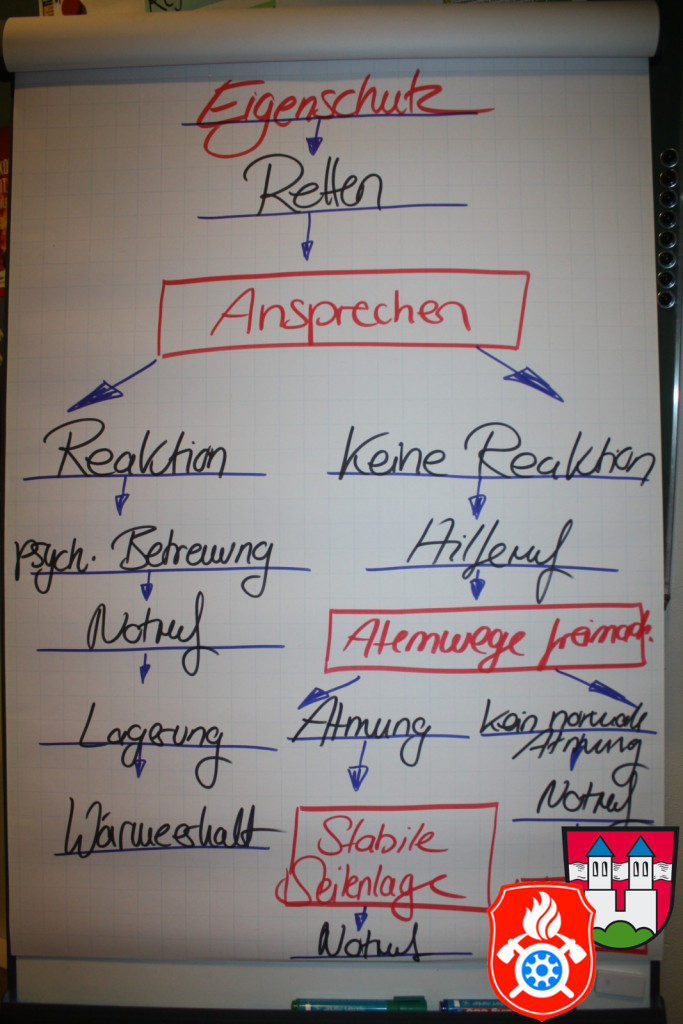 Eigenschutz
Retten
Ansprechen
Reaktion
Keine Reaktion
psych. Betreuung
Hilferuf
Notruf
Atemwege freimach.
Lagerung
Atmung
kein normale
Atmung
Notruf
Wärmeerhalt
Stabile
Seitenlage
Notruf